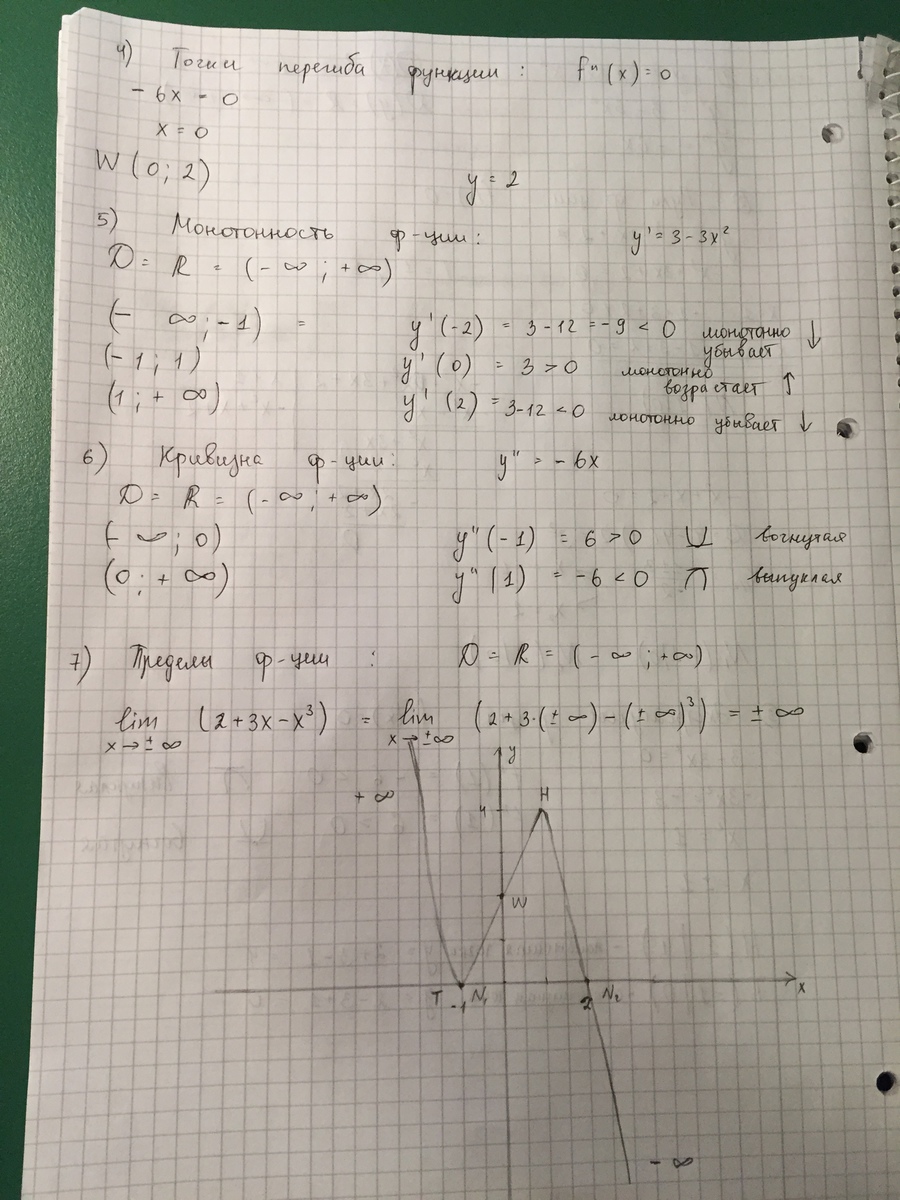 4) Точки перегиба функции : f"(x) = 0
- 6x = 0
x = 0
W (0; 2) y = 2
5) Монотонность ф-ции: y' = 3 - 3x²
D = R = (- ∞ ; + ∞)
(- ∞; -1) = y'(-2) = 3-12 = -9 < 0 монотонно убывает ↓
(-1; 1) y'(0) = 3 > 0 монотонно возрастает ↑
(1; + ∞) y'(2) = 3-12 < 0 монотонно убывает ↓
6) Кривизна ф-ции: y" = - 6x
D = R = (- ∞; + ∞)
(- ∞; 0) y"(-1) = 6 > 0 ∪ вогнутая
(0; + ∞) y"(1) = -6 < 0 ∩ выпуклая
7) Пределы ф-ции : D = R = (- ∞; +∞)
lim (2+3x-x³) = lim (2+3·(± ∞) - (± ∞)³) = ± ∞
x → ± ∞ x → ± ∞
y
+ ∞
H
4
W
T -1 N₁ 2 N₂ x
- ∞